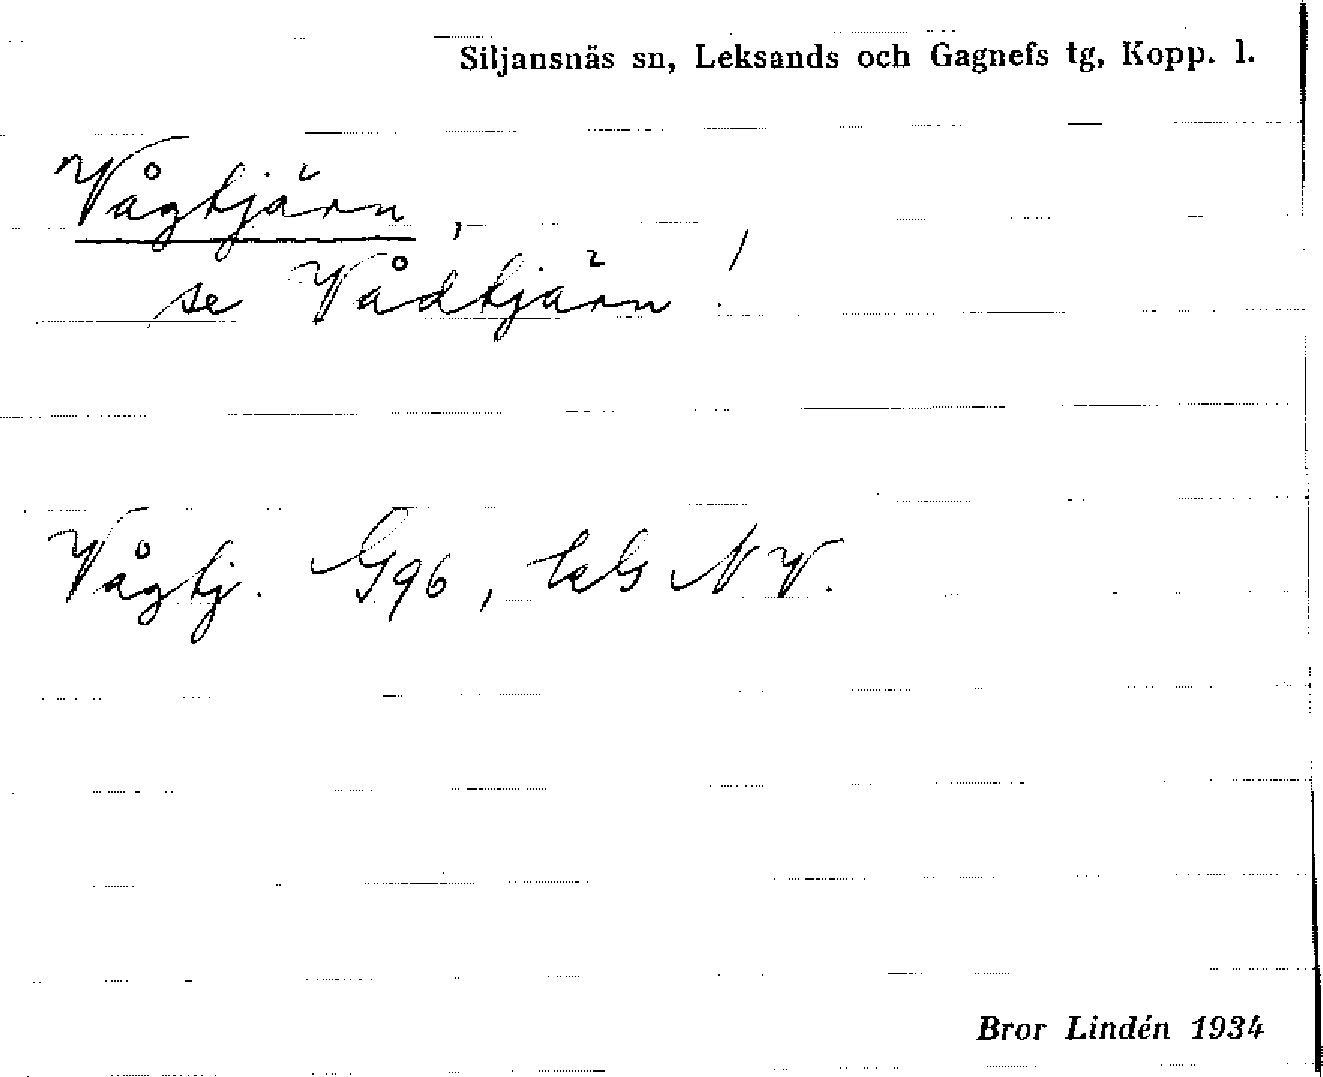 Siljansnäs sn, Leksands och Gagnefs tg, Kopp. l.
Vågtjärn,
se Vådtjärn!
Vågtj. G96, NV.
Bror Lindén 1934